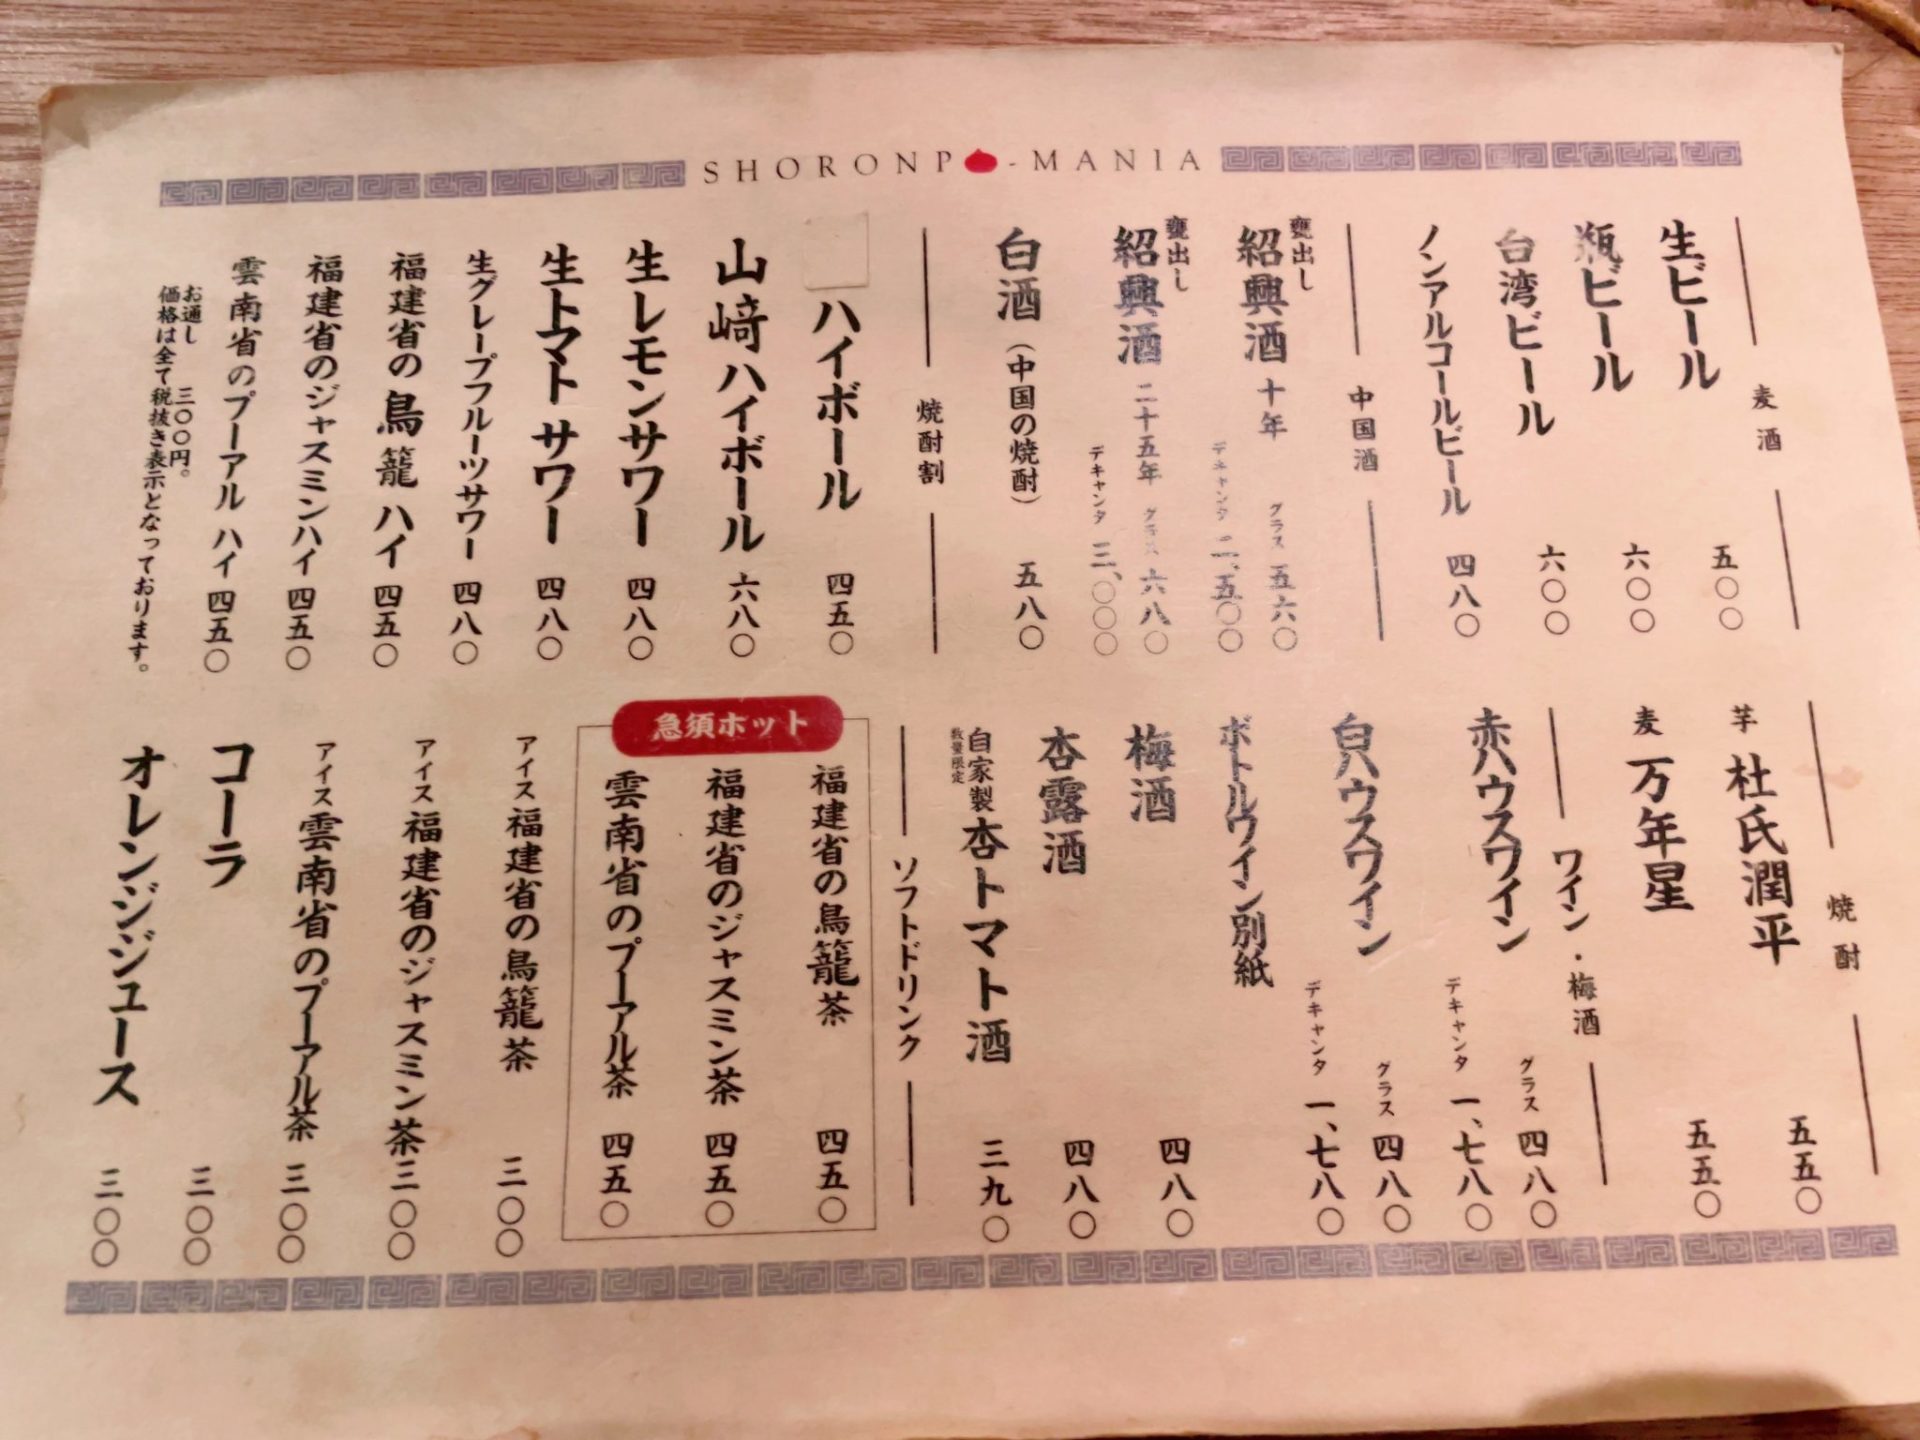 SHORONPO-MANIA
麦酒
生ビール 五〇〇
瓶ビール 六〇〇
台湾ビール 六〇〇
ノンアルコールビール 四八〇
中国酒
甕出し 紹興酒 十年 グラス 五六〇
デキャンタ 二、五〇〇
甕出し 紹興酒 二十五年 グラス 六八〇
デキャンタ 三、〇〇〇
白酒(中国の焼酎) 五八〇
焼酎割
ハイボール 四五〇
山﨑ハイボール 六八〇
生レモンサワー 四八〇
生トマトサワー 四八〇
生グレープフルーツサワー 四八〇
福建省の烏籠ハイ 四五〇
福建省のジャスミンハイ 四五〇
雲南省のプーアルハイ 四五〇
お通し 三〇〇円。
価格は全て税抜き表示となっております。
焼酎
芋 杜氏潤平 五五〇
麦 万年星 五五〇
ワイン・梅酒
赤ハウスワイン グラス 四八〇
デキャンタ 一、七八〇
白ハウスワイン グラス 四八〇
デキャンタ 一、七八〇
ボトルワイン別紙
梅酒 四八〇
杏露酒 四八〇
自家製 数量限定 杏トマト酒 三九〇
ソフトドリンク
急須ホット
福建省の烏籠茶 四五〇
福建省のジャスミン茶 四五〇
雲南省のプーアル茶 四五〇
アイス 福建省の烏籠茶 三〇〇
アイス 福建省のジャスミン茶 三〇〇
アイス 雲南省のプーアル茶 三〇〇
コーラ 三〇〇
オレンジジュース 三〇〇